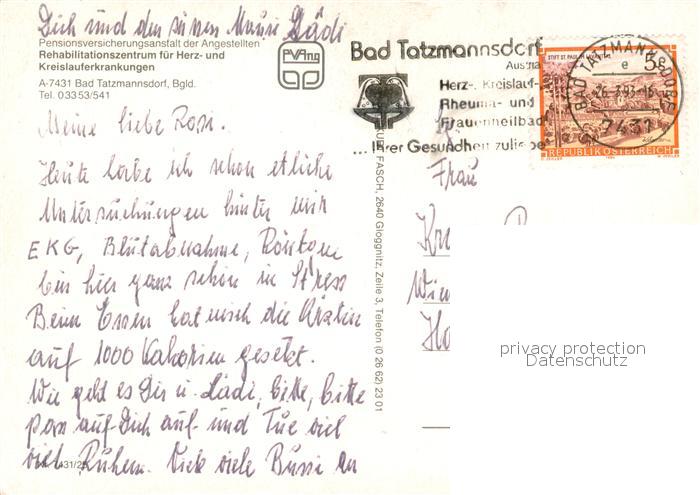 Dich und den süssen Mausi Lädi
Pensionsversicherungsanstalt der Angestellten
Rehabilitationszentrum für Herz- und
Kreislauferkrankungen
A-7431 Bad Tatzmannsdorf, Bgld.
Tel. 0 33 53/541
PVAng
Meine liebe Rosi.
Heute habe ich schon etliche
Untersuchungen hinter mir
EKG, Blutabnahme, Röntgen
bin hier ganz schön in Stress
Beim Essen hat mich die Ärztin
auf 1000 Kalorien gesetzt.
Wie geht es Dir u. Lädi, bitte, bitte
pass auf Dich auf und Tue viel
viel Ruhen. Viele viele Bussi an
Bad Tatzmannsdorf
Austria
Herz-, Kreislauf-
Rheuma- und
Frauenheilbad
... Ihrer Gesundheit zuliebe
BAD TATZMANNSDORF
e
26.3.93-15
7431
STIFT ST. PAUL IM
5s
REPUBLIK ÖSTERREICH
FASCH, 2640 Gloggnitz, Zeile 3, Telefon (0 26 62) 23 01
Frau
Wien
privacy protection
Datenschutz